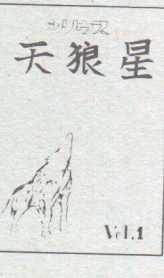 シリウス
天狼星
Vol.1